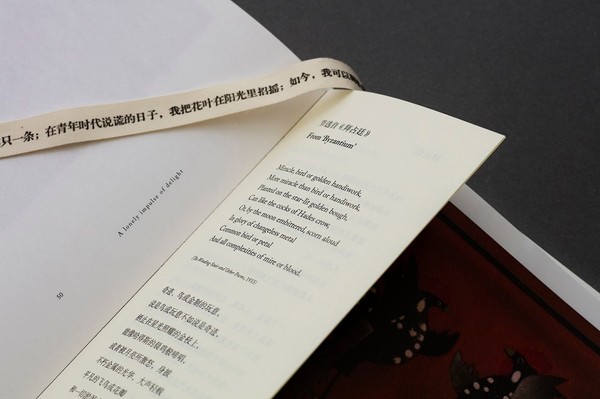 只一条；在青年时代说谎的日子，我把花叶在阳光里招摇；如今，我可以
A lonely impulse of delight
50
节选自《拜占廷》
From 'Byzantium'
Miracle, bird or golden handiwork,
More miracle than bird or handiwork,
Planted on the star-lit golden bough,
Can like the cocks of Hades crow,
Or, by the moon embittered, scorn aloud
In glory of changeless metal
Common bird or petal
And all complexities of mire or blood.
(The Winding Stair and Other Poems, 1933)
奇迹，鸟或金制的玩意，
说是鸟或玩意不如说是奇迹，
栖止在星光照耀的金枝上，
能像哈得斯的晨鸡般啼唱，
或者被月亮所激怒，身披
不朽金属的光华，大声轻贱
平凡的飞鸟或花瓣